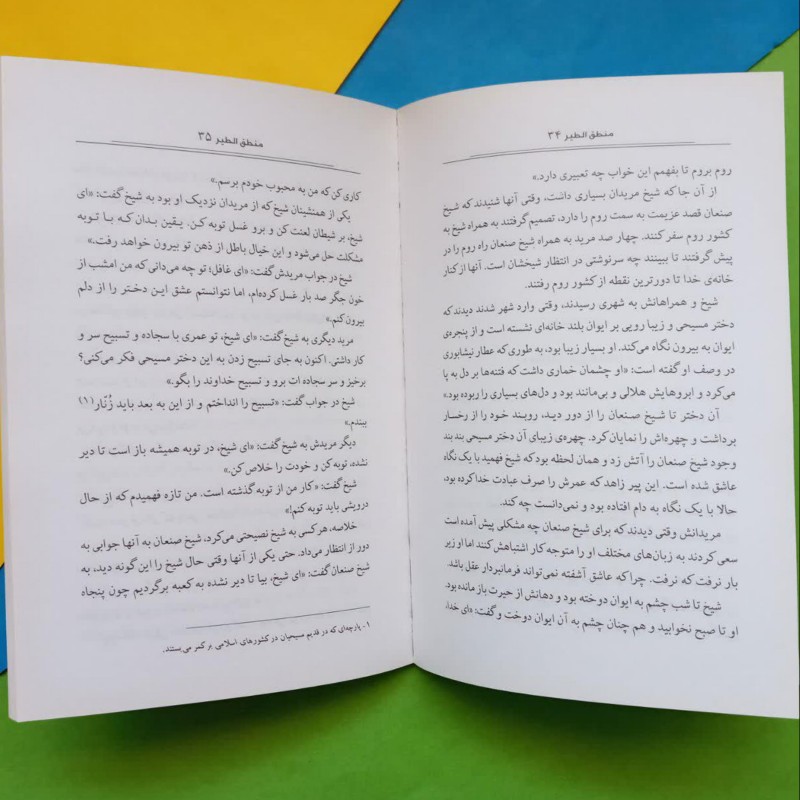 منطق الطیر ۳۴
روم بروم تا بفهمم این خواب چه تعبیری دارد.»
از آن جا که شیخ مریدان بسیاری داشت، وقتی آنها شنیدند که شیخ
صنعان قصد عزیمت به سمت روم را دارد، تصمیم گرفتند به همراه شیخ به
کشور روم سفر کنند. چهار صد مرید به همراه شیخ صنعان راه روم را در
پیش گرفتند تا ببینند چه سرنوشتی در انتظار شیخشان است. آنها از کنار
خانه‌ی خدا تا دورترین نقطه از کشور روم رفتند.
شیخ و همراهانش به شهری رسیدند، وقتی وارد شهر شدند دیدند که
دختر مسیحی و زیبا رویی بر ایوان بلند خانه‌ای نشسته است و از پنجره‌ی
ایوان به بیرون نگاه می‌کند. او بسیار زیبا بود، به طوری که عطار نیشابوری
در وصف او گفته است: «او چشمان خماری داشت که فتنه‌ها بر دل به پا
می‌کرد و ابروهایش هلالی و بی‌مانند بود و دل‌های بسیاری را ربوده بود.»
آن دختر تا شیخ صنعان را از دور دید، روبند خود را از رخسار
برداشت و چهره‌اش را نمایان کرد. چهره‌ی زیبای آن دختر مسیحی بند بند
وجود شیخ صنعان را آتش زد و همان لحظه بود که شیخ فهمید با یک نگاه
عاشق شده است. این پیر زاهد که عمرش را صرف عبادت خدا کرده بود،
حالا با یک نگاه به دام افتاده بود و نمی‌دانست چه کند.
مریدانش وقتی دیدند که برای شیخ صنعان چه مشکلی پیش آمده است
سعی کردند به زبان‌های مختلف او را متوجه کار اشتباهش کنند اما او زیر
بار نرفت که نرفت. چرا که عاشق آشفته نمی‌تواند فرمانبردار عقل باشد.
شیخ تا شب چشم به ایوان دوخته بود و دهانش از حیرت باز مانده بود.
او تا صبح نخوابید و هم چنان چشم به آن ایوان دوخت و گفت: «ای خدا،
منطق الطیر ۳۵
کاری کن که من به محبوب خودم برسم.»
یکی از همنشینان شیخ که از مریدان نزدیک او بود به شیخ گفت: «ای
شیخ، بر شیطان لعنت کن و برو غسل توبه کن. یقین بدان که با توبه
مشکلت حل می‌شود و این خیال باطل از ذهن تو بیرون خواهد رفت.»
شیخ در جواب مریدش گفت: «ای غافل! تو چه می‌دانی که من امشب از
خون جگر صد بار غسل کرده‌ام، اما نتوانستم عشق این دختر را از دلم
بیرون کنم.»
مرید دیگری به شیخ گفت: «ای شیخ، تو عمری با سجاده و تسبیح سر و
کار داشتی. اکنون به جای تسبیح زدن به این دختر مسیحی فکر می‌کنی؟
برخیز و سر سجاده ات برو و تسبیح خداوند را بگو.»
شیخ در جواب گفت: «تسبیح را انداختم و از این به بعد باید زُنّار(۱)
ببندم.»
دیگر مریدش به شیخ گفت: «ای شیخ، در توبه همیشه باز است تا دیر
نشده، توبه کن و خودت را خلاص کن.»
شیخ گفت: «کار من از توبه گذشته است. من تازه فهمیدم که از حال
درویشی باید توبه کنم!»
خلاصه، هر کسی به شیخ نصیحتی می‌کرد، شیخ صنعان به آنها جوابی به
دور از انتظار می‌داد. حتی یکی از آنها وقتی حال شیخ را این گونه دید، به
شیخ صنعان گفت: «ای شیخ، بیا تا دیر نشده به کعبه برگردیم چون پنجاه
۱ـ پارچه‌ای که در قدیم مسیحیان در کشورهای اسلامی بر کمر می‌بستند.